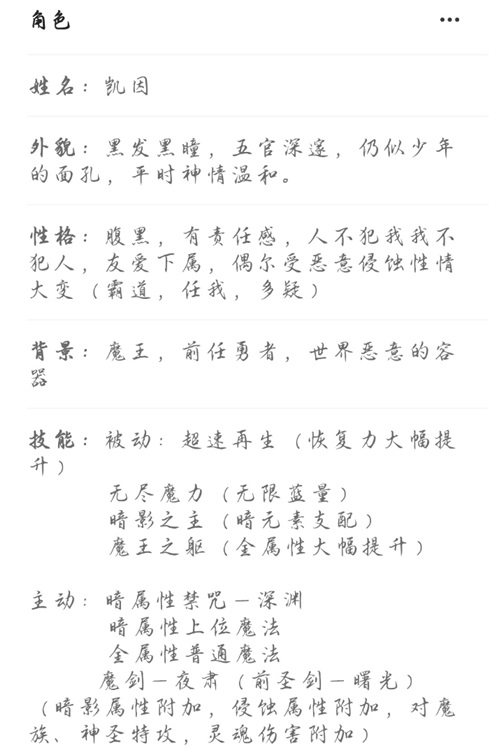 角色
姓名：凯因
外貌：黑发黑瞳，五官深邃，仍似少年
的面孔，平时神情温和。
性格：腹黑，有责任感，人不犯我我不
犯人，友爱下属，偶尔受恶意侵蚀性情
大变（霸道，任我，多疑）
背景：魔王，前任勇者，世界恶意的容
器
技能：被动：超速再生（恢复力大幅提
升）
无尽魔力（无限蓝量）
暗影之主（暗元素支配）
魔王之躯（金属性大幅提升）
主动：暗属性禁咒－深渊
暗属性上位魔法
金属性普通魔法
魔剑－夜肃（前圣剑－曙光）
（暗影属性附加，侵蚀属性附加，对魔
族、神圣特攻，灵魂伤害附加）